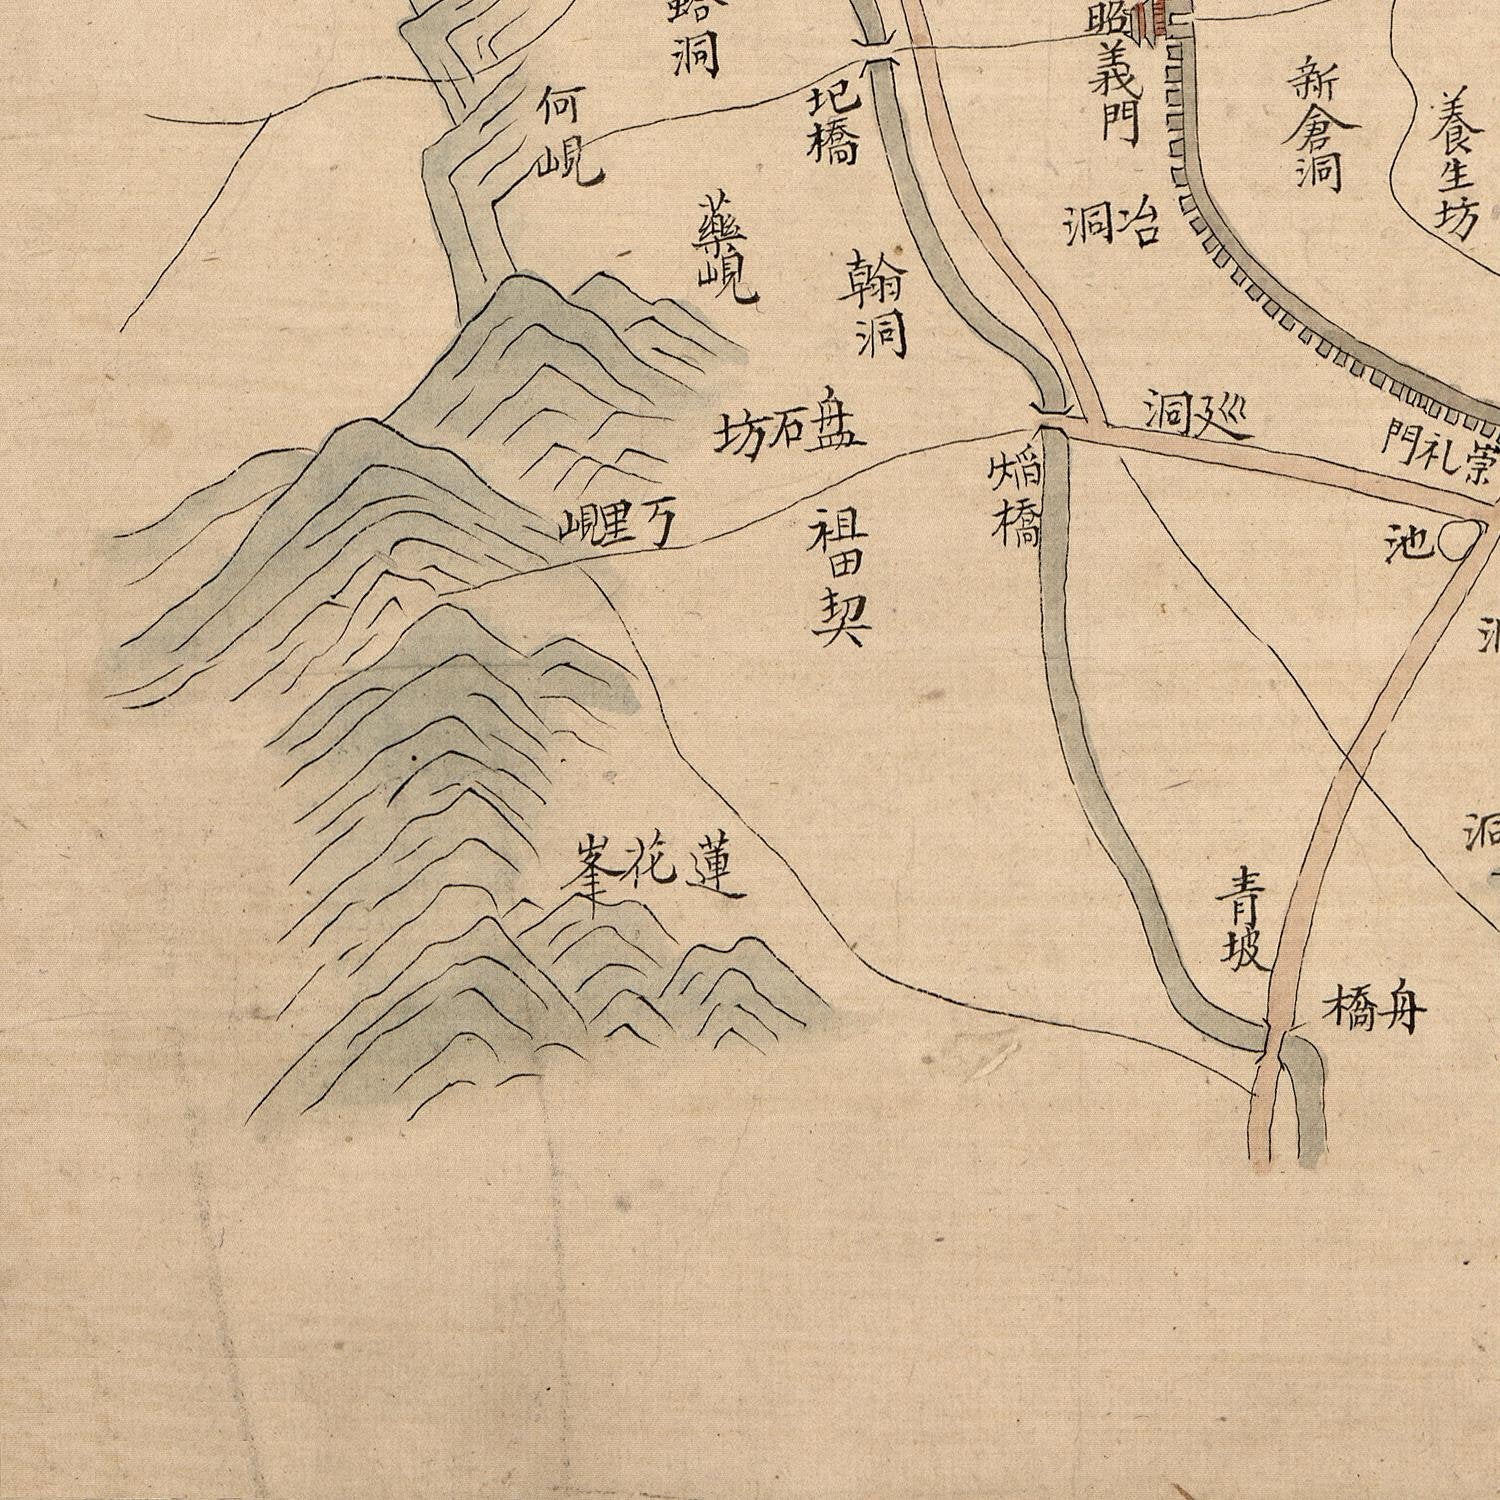 洞
昭義門
新倉洞
養生坊
圯橋
何峴
藥峴
冶洞
翰洞
巡洞
盤石坊
崇礼門
橋
里峴
池
祖田契
洞
蓮花峯
青坡
舟橋